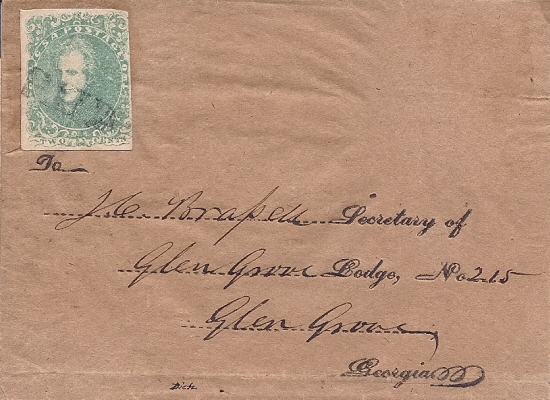 C.S.A POSTAGE
PAID
TWO CENTS
To
J C Secretary of
Glen Grove Lodge, No 215
Glen Grove,
Georgia